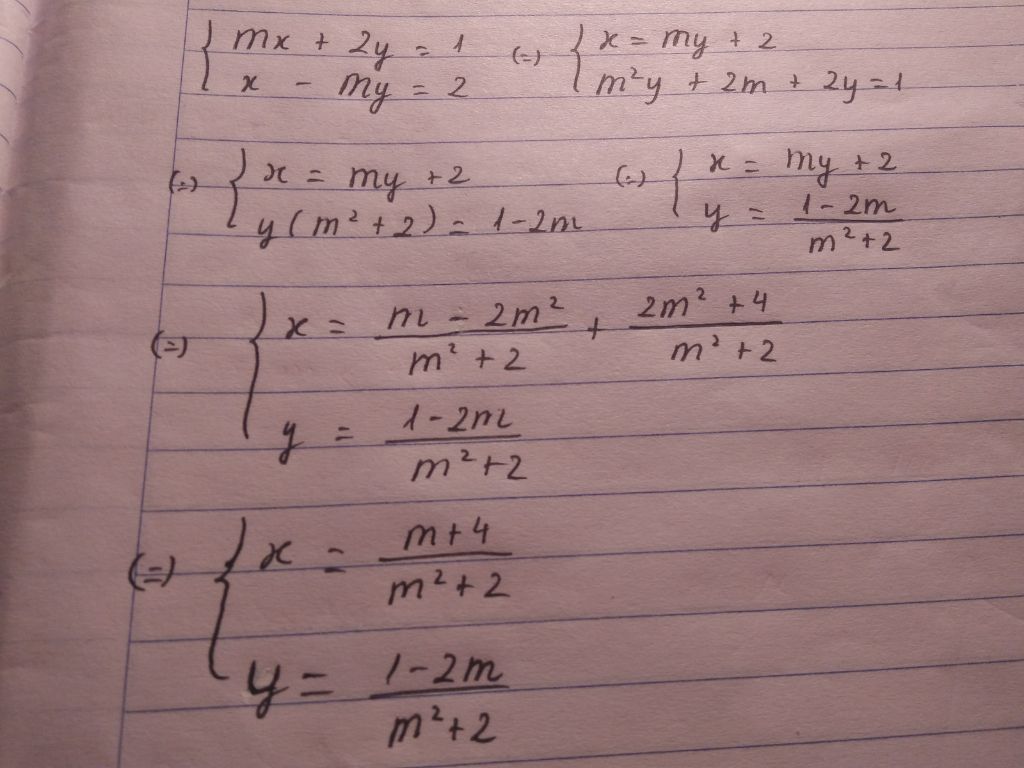 { mx + 2y = 1 (=) { x = my + 2
x - my = 2 m²y + 2m + 2y = 1
(=) { x = my + 2 (=) { x = my + 2
y(m² + 2) = 1 - 2m y = (1 - 2m)/(m² + 2)
(=) { x = (m - 2m²)/(m² + 2) + (2m² + 4)/(m² + 2)
y = (1 - 2m)/(m² + 2)
(=) { x = (m + 4)/(m² + 2)
y = (1 - 2m)/(m² + 2)